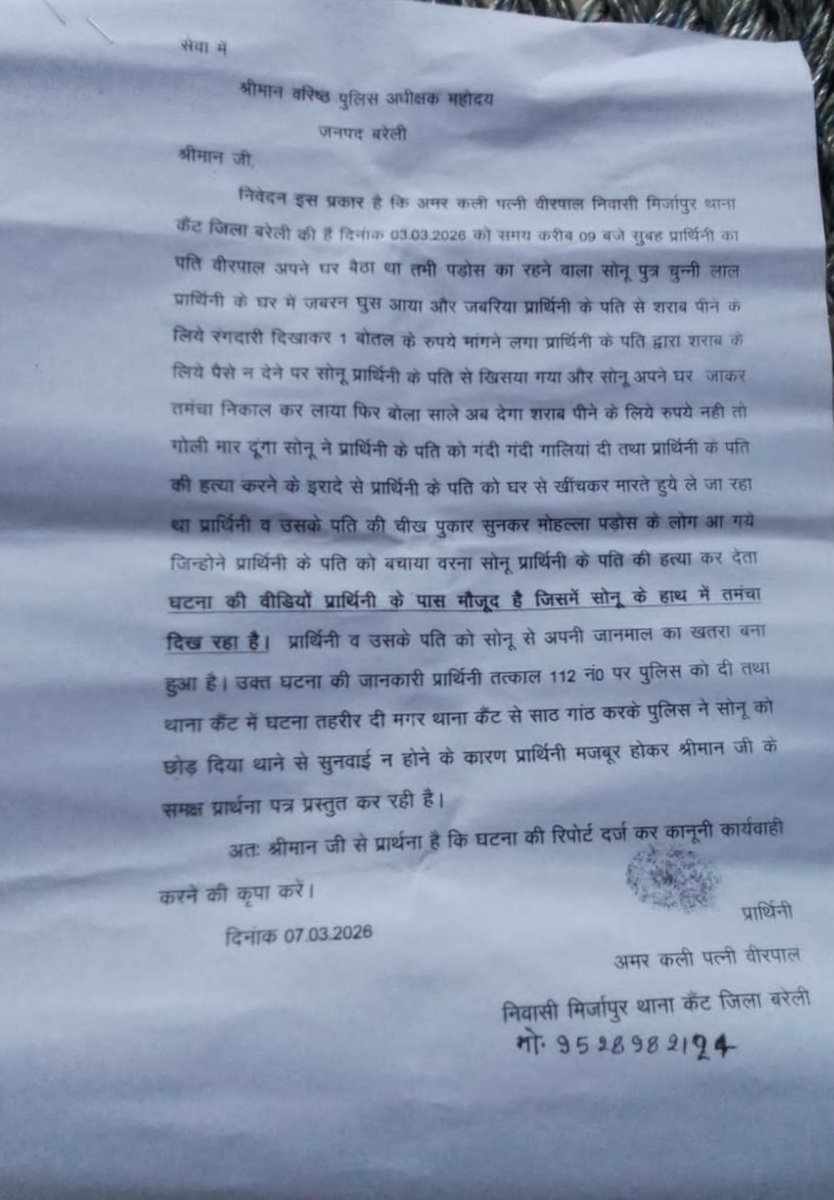 सेवा में
श्रीमान वरिष्ठ पुलिस अधीक्षक महोदय
जनपद बरेली
श्रीमान जी,
निवेदन इस प्रकार है कि अमर कली पत्नी वीरपाल निवासी मिर्जापुर थाना
कैंट जिला बरेली की है दिनांक 03.03.2026 को समय करीब 09 बजे सुबह प्रार्थिनी का
पति वीरपाल अपने घर बैठा था तभी पडोस का रहने वाला सोनू पुत्र चुन्नी लाल
प्रार्थिनी के घर में जबरन घुस आया और जबरिया प्रार्थिनी के पति से शराब पीने के
लिये रंगदारी दिखाकर 1 बोतल के रुपये मांगने लगा प्रार्थिनी के पति द्वारा शराब के
लिये पैसे न देने पर सोनू प्रार्थिनी के पति से खिसया गया और सोनू अपने घर जाकर
तमंचा निकाल कर लाया फिर बोला साले अब देगा शराब पीने के लिये रुपये नही तो
गोली मार दूंगा सोनू ने प्रार्थिनी के पति को गंदी गंदी गालियां दी तथा प्रार्थिनी के पति
की हत्या करने के इरादे से प्रार्थिनी के पति को घर से खींचकर मारते हुये ले जा रहा
था प्रार्थिनी व उसके पति की चीख पुकार सुनकर मोहल्ला पड़ोस के लोग आ गये
जिन्होने प्रार्थिनी के पति को बचाया वरना सोनू प्रार्थिनी के पति की हत्या कर देता
घटना की वीडियों प्रार्थिनी के पास मौजूद है जिसमें सोनू के हाथ में तमंचा
दिख रहा है। प्रार्थिनी व उसके पति को सोनू से अपनी जानमाल का खतरा बना
हुआ है। उक्त घटना की जानकारी प्रार्थिनी तत्काल 112 नं0 पर पुलिस को दी तथा
थाना कैंट में घटना तहरीर दी मगर थाना कैंट से साठ गांठ करके पुलिस ने सोनू को
छोड़ दिया थाने से सुनवाई न होने के कारण प्रार्थिनी मजबूर होकर श्रीमान जी के
समक्ष प्रार्थना पत्र प्रस्तुत कर रही है।
अतः श्रीमान जी से प्रार्थना है कि घटना की रिपोर्ट दर्ज कर कानूनी कार्यवाही
करने की कृपा करें।
प्रार्थिनी
दिनांक 07.03.2026
अमर कली पत्नी वीरपाल
निवासी मिर्जापुर थाना कैंट जिला बरेली
मो. 9528982124